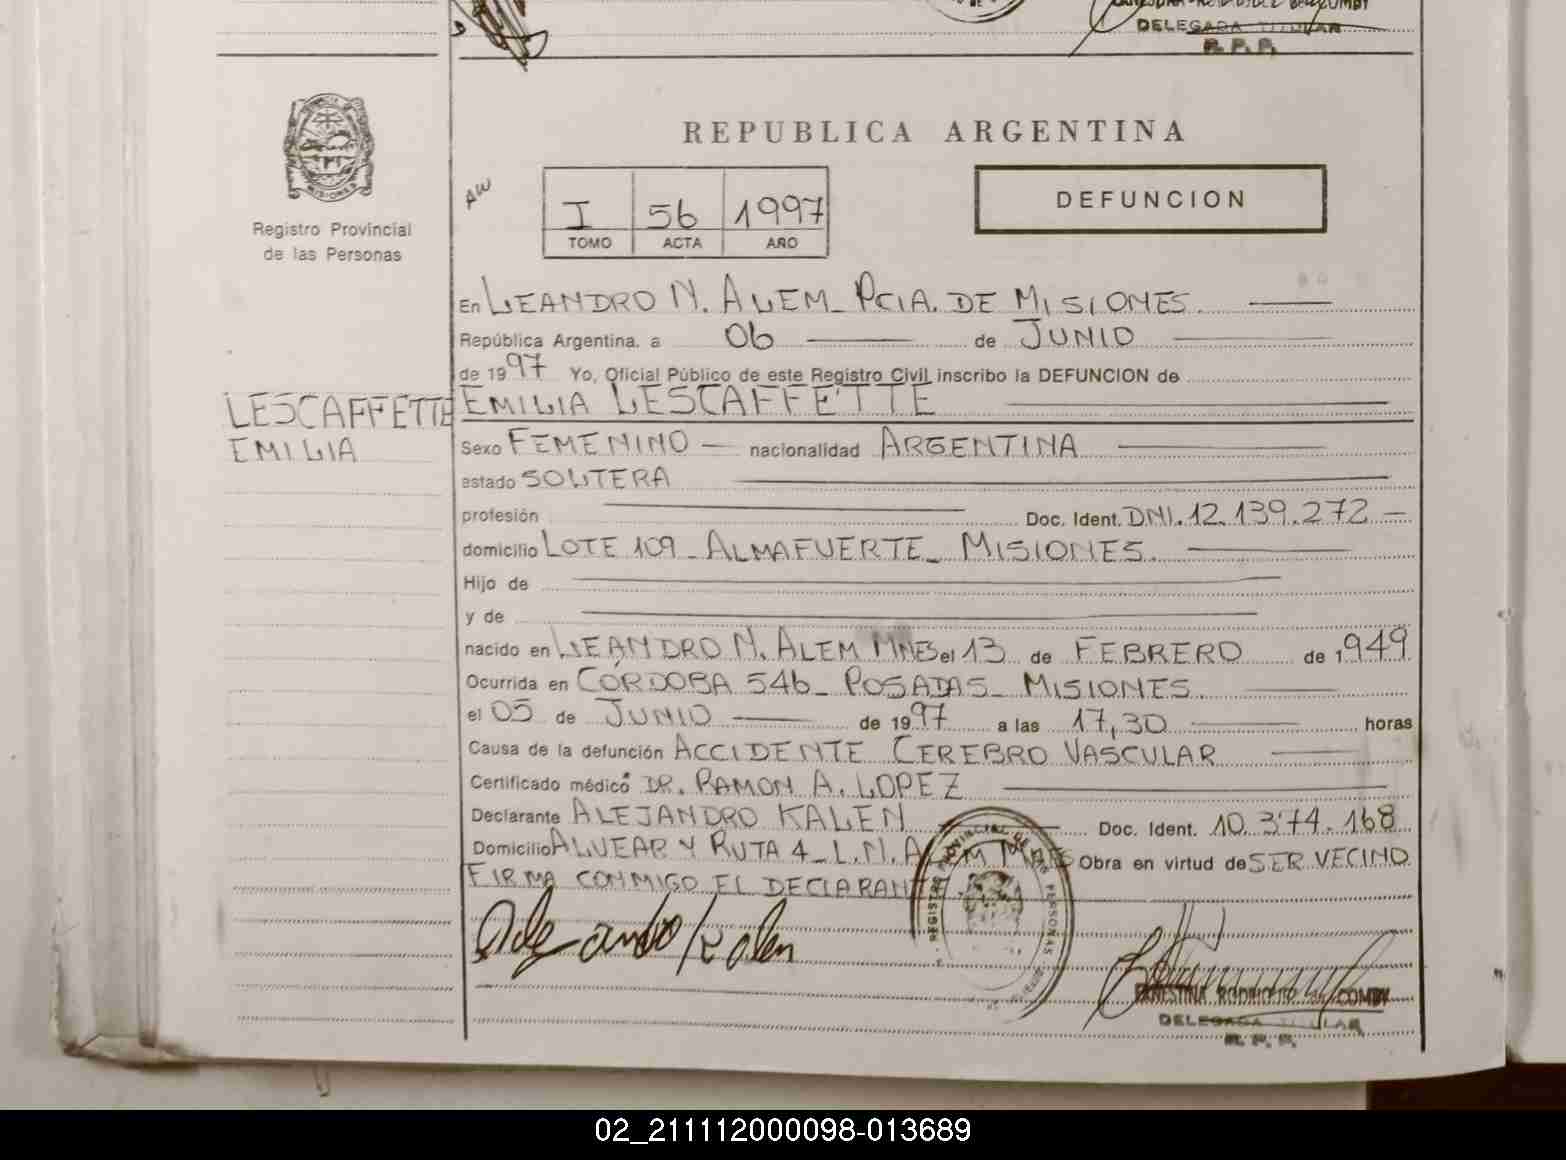 DELEGADA TITULAR
R. P. P.
MISIONES
Registro Provincial
de las Personas
REPUBLICA ARGENTINA
AW
I 56 1997
TOMO ACTA AÑO
DEFUNCION
En LEANDRO N. ALEM_ PCIA. DE MISIONES.
República Argentina, a 06 de JUNIO
de 1997 Yo, Oficial Público de este Registro Civil inscribo la DEFUNCION de
LESCAFFETTE EMILIA LESCAFFETTE
EMILIA
Sexo FEMENINO nacionalidad ARGENTINA
estado SOLTERA
profesión Doc. Ident. DNI. 12.139.272
domicilio LOTE 109_ ALMAFUERTE_ MISIONES.
Hijo de
y de
nacido en LEANDRO N. ALEM MNES el 13 de FEBRERO de 1949
Ocurrida en CÓRDOBA 546_ POSADAS_ MISIONES.
el 05 de JUNIO de 1997 a las 17,30 horas
Causa de la defunción ACCIDENTE CEREBRO VASCULAR
Certificado médico DR. RAMON A. LOPEZ
Declarante ALEJANDRO KALEN Doc. Ident. 10.374.168
Domicilio ALVEAR Y RUTA 4_ L.N. ALEM MNES Obra en virtud de SER VECINO
FIRMA CONMIGO EL DECLARANTE
Alejandro Kalen
PROVINCIAL DE LAS PERSONAS
DELEGADA TITULAR
R. P. P.
02_211112000098-013689